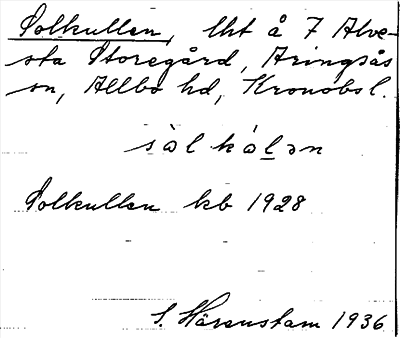 Solkullen, lht å 7 Alve-
sta Storegård, Aringsås
sn, Allbo hd, Kronobsl.
sòl kòlən
Solkullen kb 1928
S. Härenstam 1936